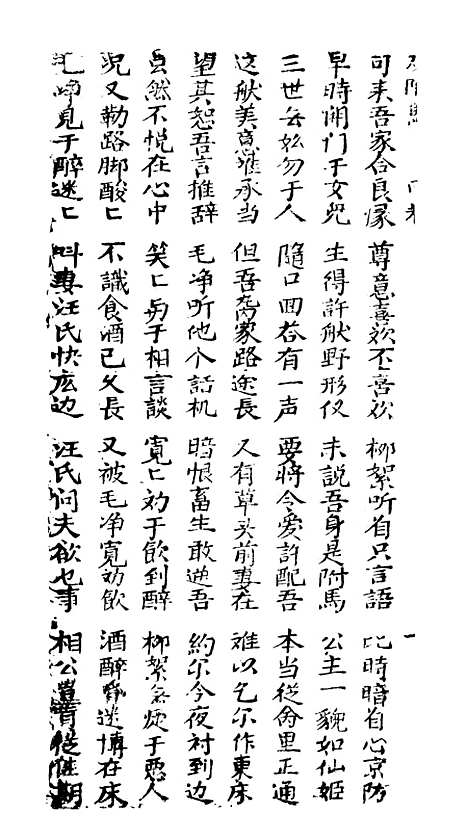 可来吾家合良缘 尊意喜欢不喜欢 柳絮听自只言語 比時暗自心京防
早時開门于女兜 生得許般野形仪 未説吾身是附馬 公主一貌如仙姬
三世 勿于人 隨口回答有一声 要將令爱許配吾 本当從 里正通
这般美意难承当 但吾离家路途長 又有草头前妻在 难以乞尔作東床
望其恕吾言推辞 毛净听他个話机 暗恨畜生敢逆吾 約尔今夜 到边
虽然不悦在心中 笑匕与于相言談 寬匕劝于飲到醉 柳絮怎疑于悪人
况又勒路脚酸匕 不識食酒已久長 又被毛净寬劝飲 酒醉昏迷 在床
毛净見于醉迷匕 叫妻汪氏快庅边 汪氏问夫欲乜事 相公 期